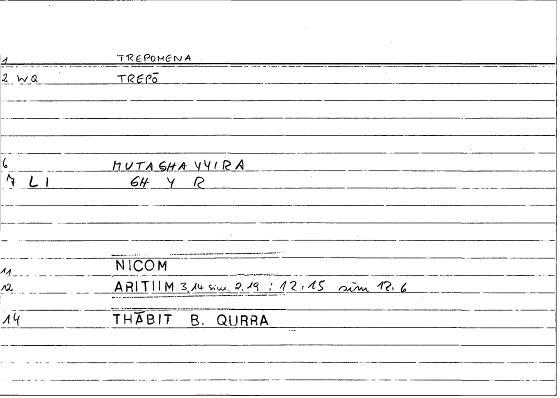 1 TREPOMENA
2 WQ TREPŌ
6 MUTAGHAYYIRA
7 LI GH Y R
11 NICOM
12 ARITIIM 3,14 sim 2,19 : 12.15 sim 12.6
14 THĀBIT B. QURRA